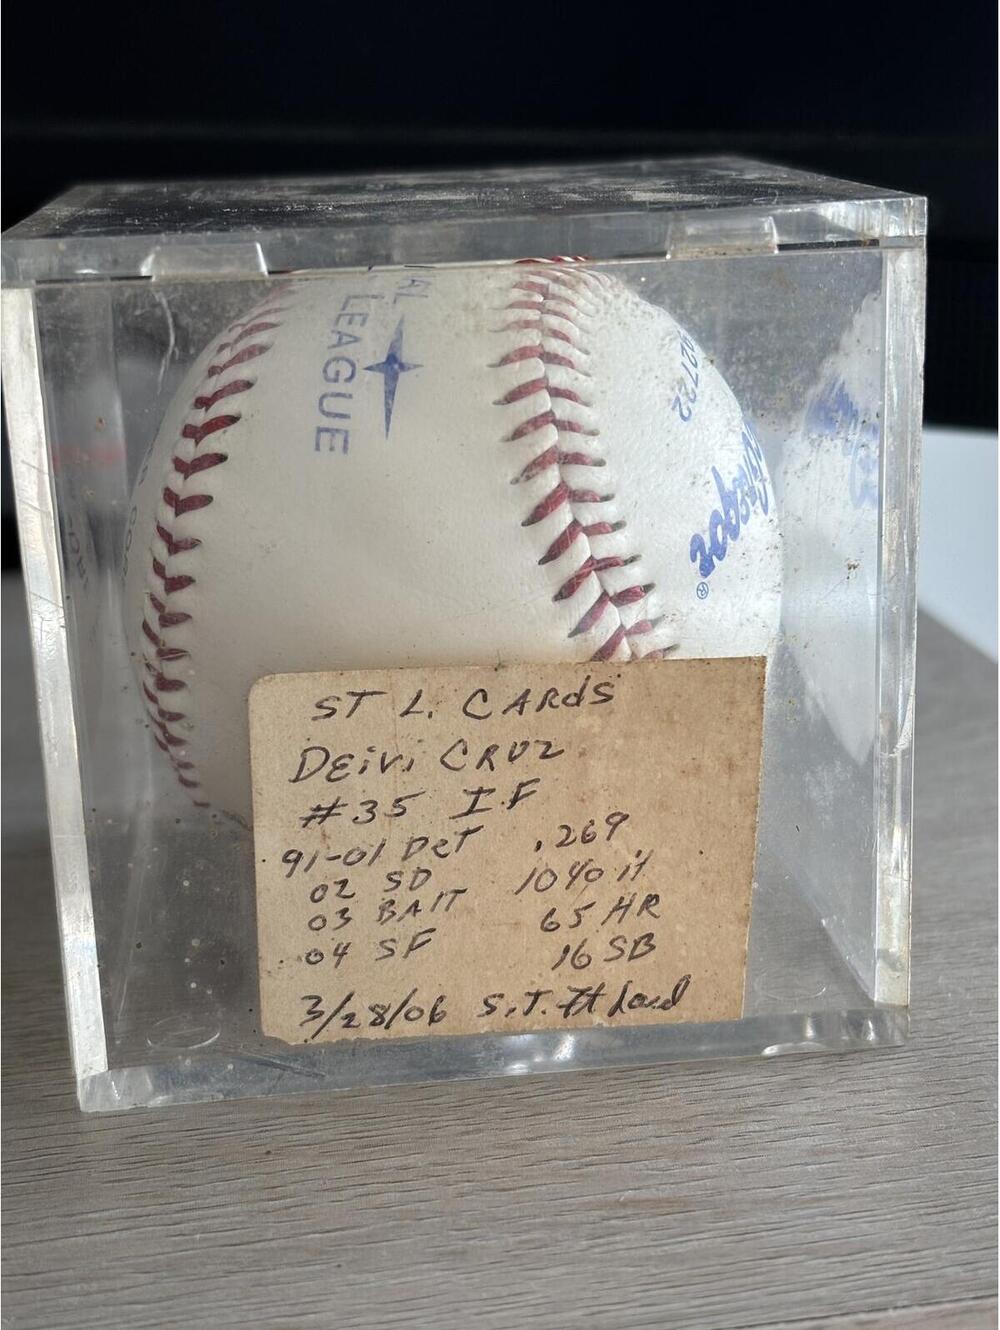 LEAGUE
92722
MacGregor
®
ST L. CARds
DEivi CRUZ
#35 I.F
91-01 DeT .269
02 SD 1040 H
03 BAlT 65 HR
04 SF 16 SB
3/28/06 S.T. Ft Laud